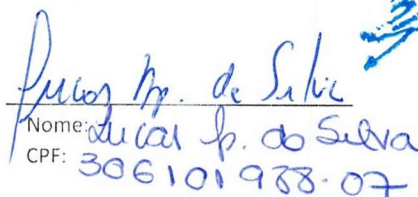 Lucas M. da Silva
Nome: Lucas p. da Silva
CPF: 306101938-07